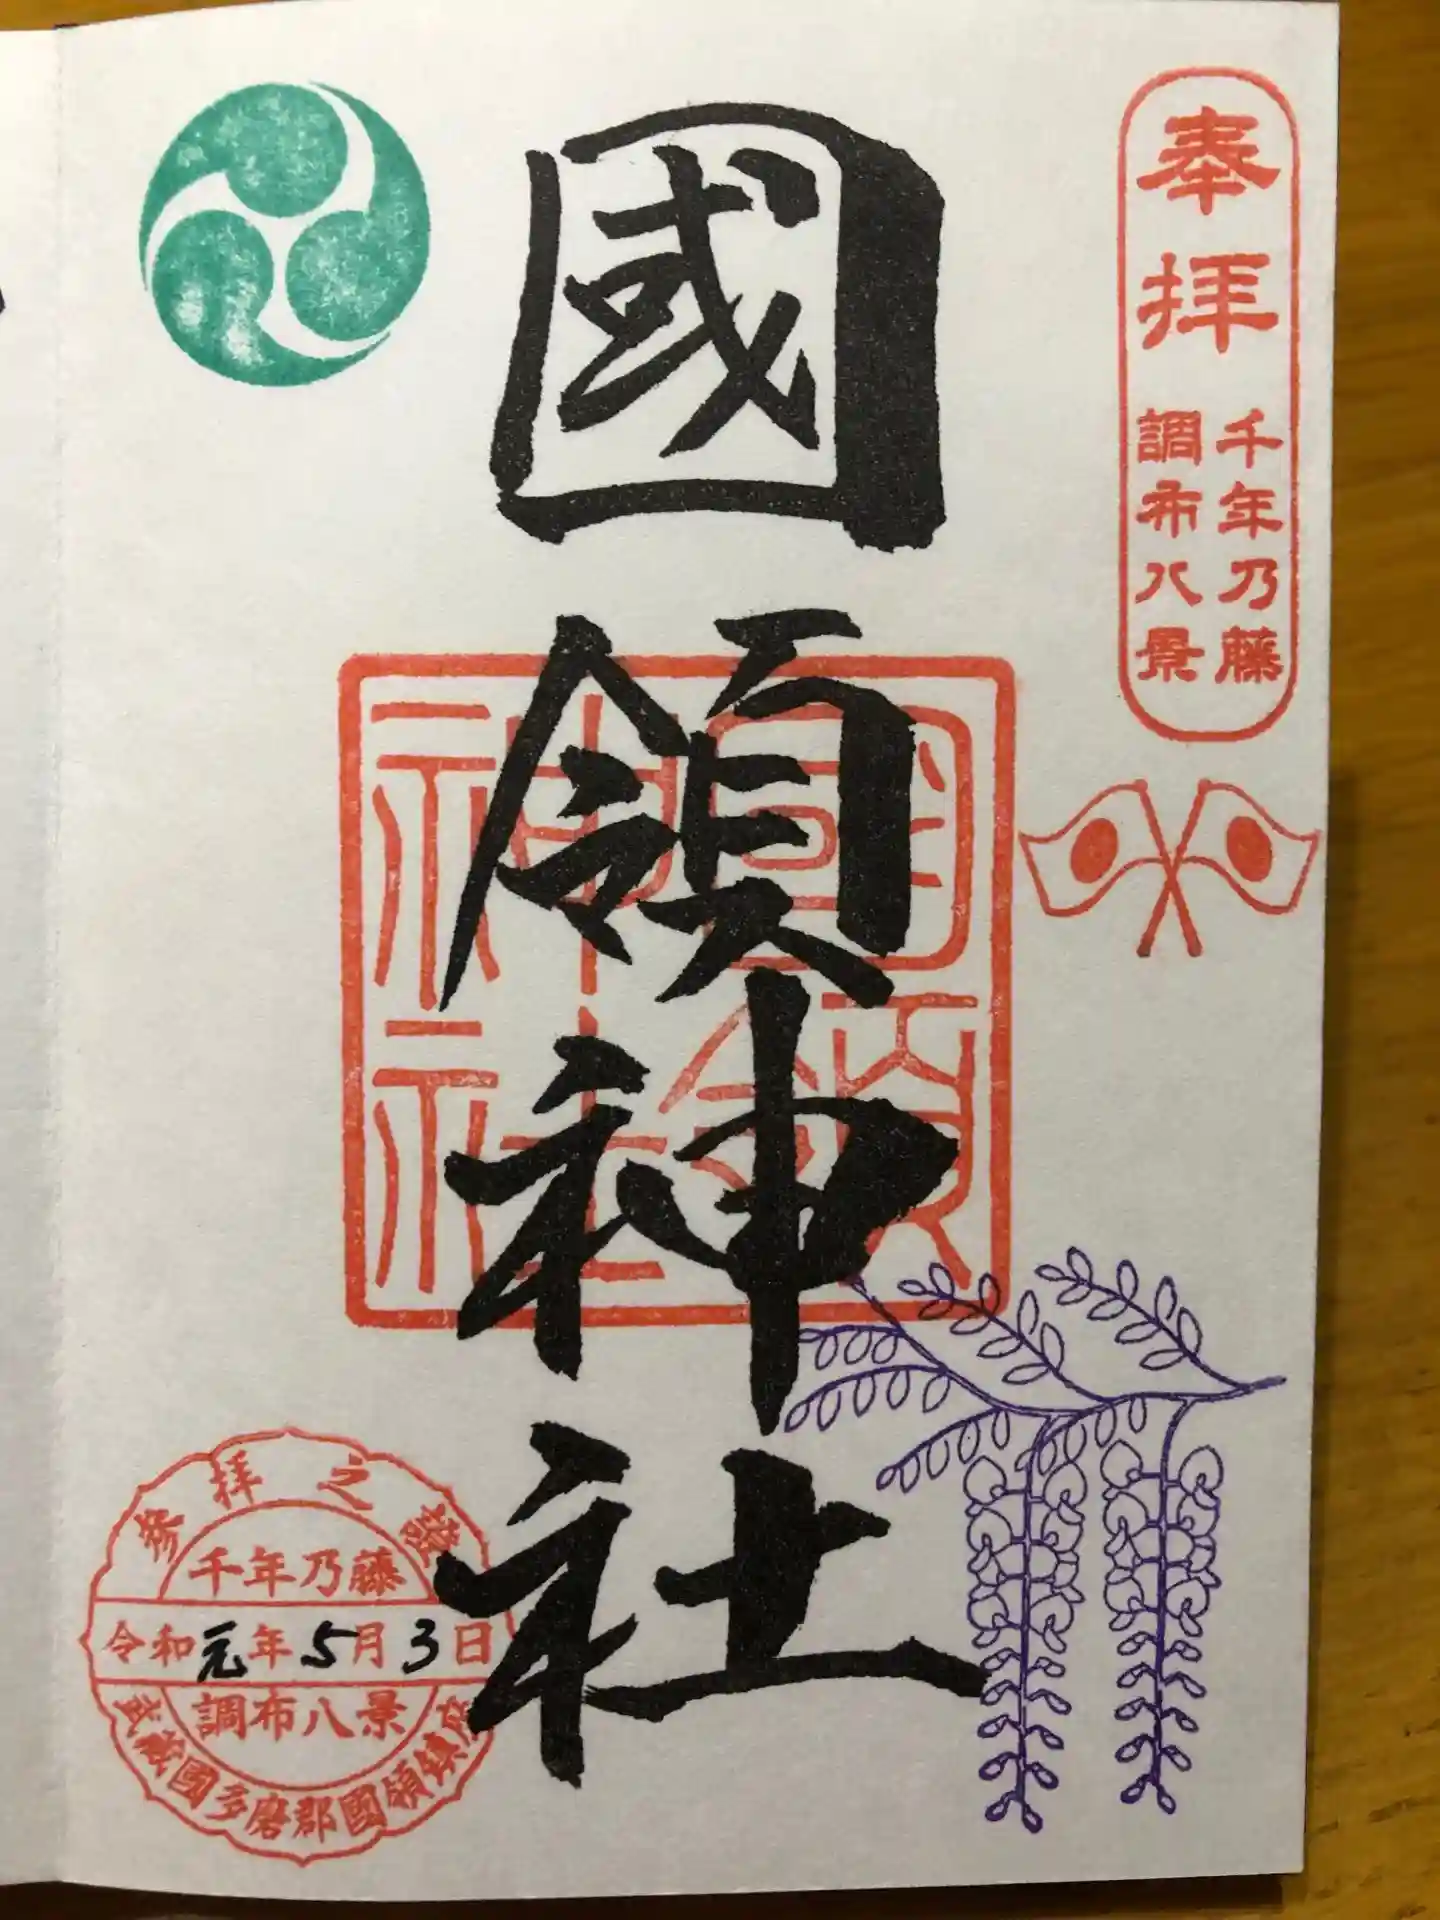 奉拝
千年乃藤
調布八景
國領神社
國領
神社
參拝之證
千年乃藤
令和元年5月3日
調布八景
武蔵國多磨郡國領鎮座